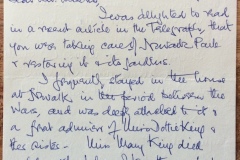 I was delighted to read
in a recent article in the Telegraph, that
you were taking care of Newark Park
& restoring it & its gardens.
I frequently stayed in the house
at Newark in the period between the
Wars, and was deeply attached to it &
a great admirer of Miss Dottie King &
her sister - Miss Mary King died